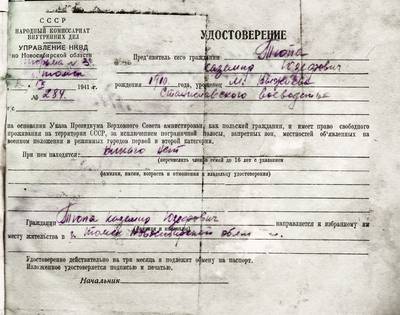 СССР
НАРОДНЫЙ КОМИССАРИАТ
ВНУТРЕННИХ ДЕЛ
УПРАВЛЕНИЕ НКВД
по Новосибирской области
1941 г.
№ 284
УДОСТОВЕРЕНИЕ
Пред'явитель сего гражданин
рождения 1910 уроженец
Станиславского воеводства
на основании Указа Президиума Верховного Совета амнистирован, как польский гражданин, и имеет право свободного
проживания на территории СССР, за исключением пограничной полосы, запретных зон, местностей об'явленных на
военном положении и режимных городов первой и второй категории.
При нем находятся:
(перечислить членов семьи и детей до 16 лет с указанием
фамилии, имени, возраста и отношения к владельцу удостоверения)
Гражданин
направляется к избранному им
(фамилия и инициалы)
месту жительства в г. Томск Новосибирской обл.
Удостоверение действительно на три месяца и подлежит обмену на паспорт.
Изложенное удостоверяется подписью и печатью.
Начальник